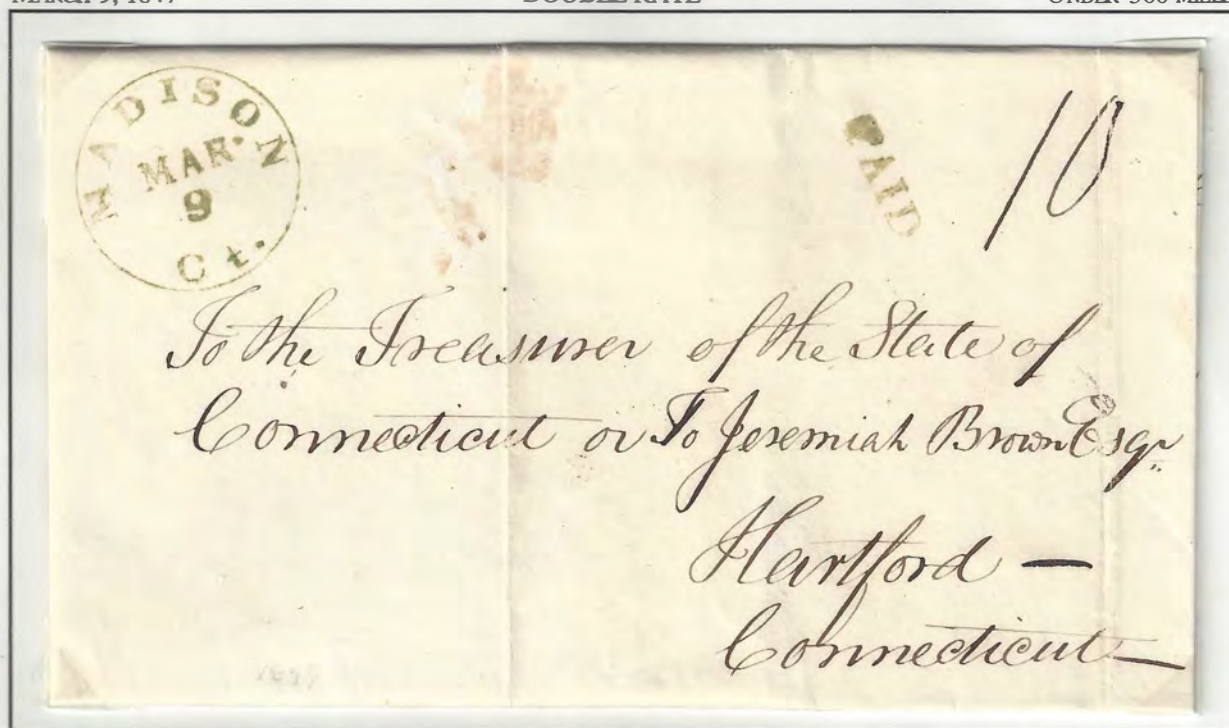 DOUBLE RATE
MADISON
MAR.
9
Ct.
PAID
10
To the Treasurer of the State of
Connecticut or To Jeremiah Brown Esqr
Hartford —
Connecticut —